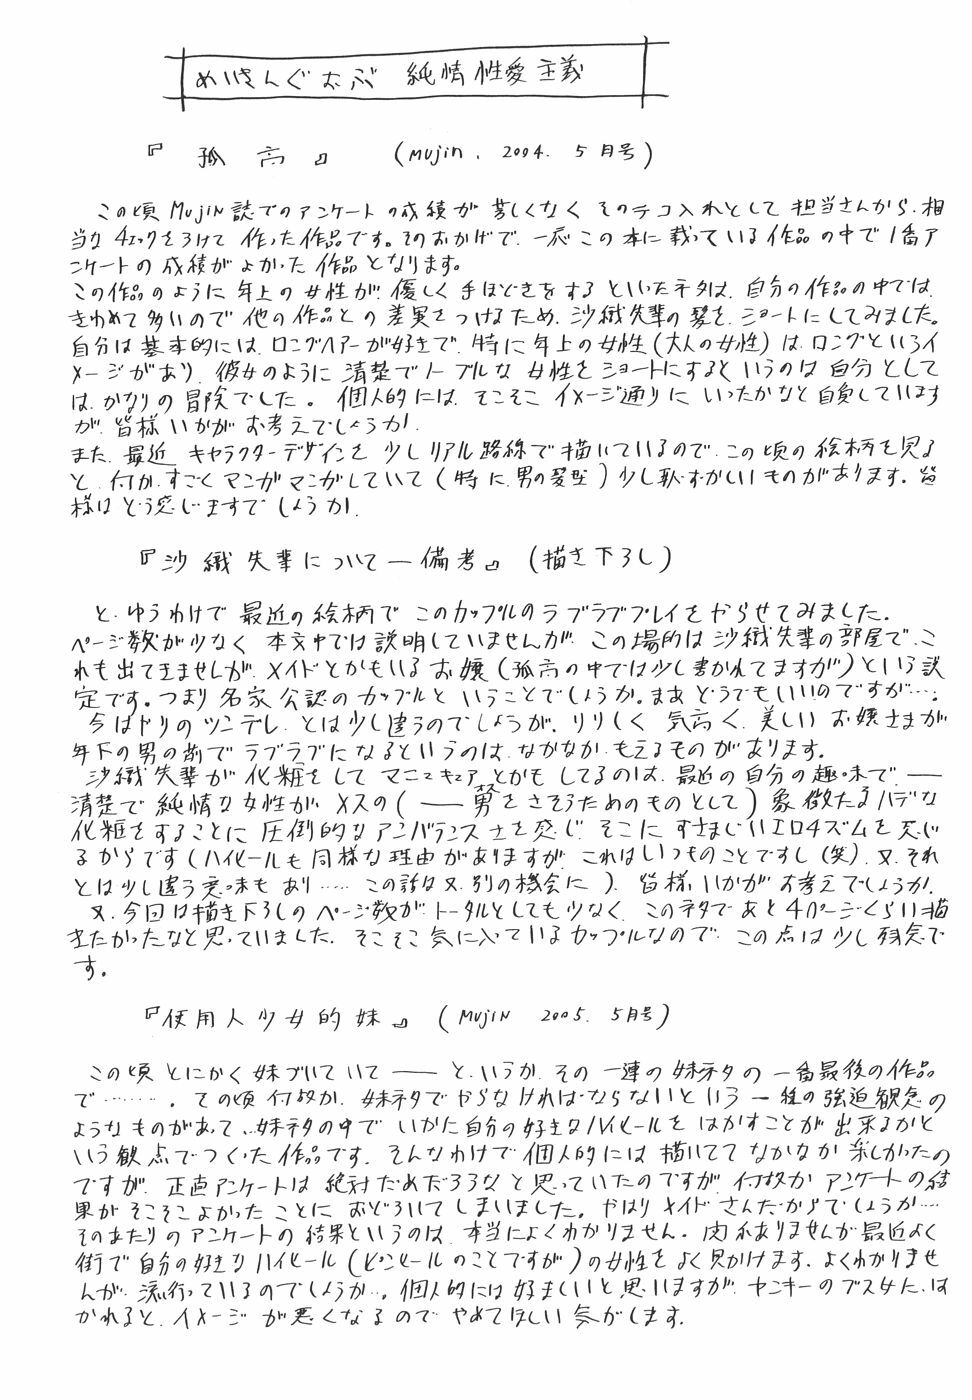 めいきんぐおぶ 純情性愛主義
『孤高』 (MUJIN. 2004. 5月号)
この頃 MUJIN誌でのアンケートの成績が芳しくなく そのテコ入れとして 担当さんから、相
当なチェックをうけて 作った作品です。そのおかげで、一応 この本に載っている作品の中で1番ア
ンケートの成績がよかった作品となります。
この作品のように 年上の女性が、優しく手ほどきをするといったネタは、自分の作品の中では、
きわめて多いので 他の作品との差異をつけるため、沙織先輩の髪を、ショートにしてみました。
自分は基本的には、ロングヘアーが好きで、特に年上の女性(大人の女性)は、ロングというイ
メージがあり、彼女のように 清楚でノーブルな 女性をショートにするというのは 自分として
は、かなりの冒険でした。 個人的には、そこそこ イメージ通りに いったかなと自負しています
が、皆様いかがお考えでしょうか。
また、最近 キャラクターデザインを少しリアル路線で描いているので、この頃の絵柄を見る
と、何か、すごくマンガマンガしていて(特に、男の髪型)少し恥ずかしいものがあります。皆
様は どう感じますでしょうか。
『沙織先輩について―備考』 (描き下ろし)
と、ゆうわけで 最近の絵柄で このカップルのラブラブプレイをやらせてみました。
ページ数が少なく 本文中では説明していませんが、この場所は沙織先輩の部屋で、こ
れも出てきませんが、メイドとかもいるお嬢(孤高の中では少し書かれてますが)という設
定です。つまり 名家公認のカップルと いうことでしょうか。まあ どうでもいいのですが…。
今はやりのツンデレ、とは少し違うのでしょうが、りりしく 気高く、美しい お嬢さまが
年下の男の前でラブラブになるというのは、なかなか、もえるものがあります。
沙織先輩が 化粧をして マニュキュアとかも してるのは、最近の自分の趣味で、――
清楚で純情な女性が、メスの(――男をさそうためのものとして)象徴たるハデな
化粧をすることに 圧倒的なアンバランスさを感じ、そこに すさまじいエロチズムを感じ
るからです(ハイヒールも同様な理由がありますが、これはいつものことですし(笑)、又、それ
とは少し違う意味も あり…… この話は又、別の機会に)。皆様、いかがお考えでしょうか。
又、今回は描き下ろしの ページ数が、トータルとしても少なく、このネタであと4ページくらい描
きたかったなと思っていました。そこそこ気に入っているカップルなので、この点は少し残念で
す。
『使用人少女的妹』 (MUJIN 2005. 5月号)
この頃 とにかく妹づいていて――と、いうか、その一連の妹ネタの一番最後の作品
で………。この頃 何故か、妹ネタでやらなければならないという 一種の強迫観念の
ようなものがあって、妹ネタの中で いかに自分の好きなハイヒールを はかすことが出来るかと
いう観点でつくった作品です。そんなわけで個人的には 描いてて なかなか楽しかったの
ですが、正直アンケートは 絶対だめだろうなと思っていたのですが、何故か アンケートの結
果が そこそこよかった ことに おどろいてしまいました。やはり メイドさんだからでしょうか…
そのあたりのアンケートの結果というのは、本当によくわかりません。関係ありませんが最近よく
街で自分の好きなハイヒール(ピンヒールのことですが)の女性をよく見かけます。よくわかりませ
んが、流行っているのでしょうか。個人的には好ましいと思いますが、ヤンキーのブス女に、は
かれると、イメージが悪くなるので やめてほしい気がします。